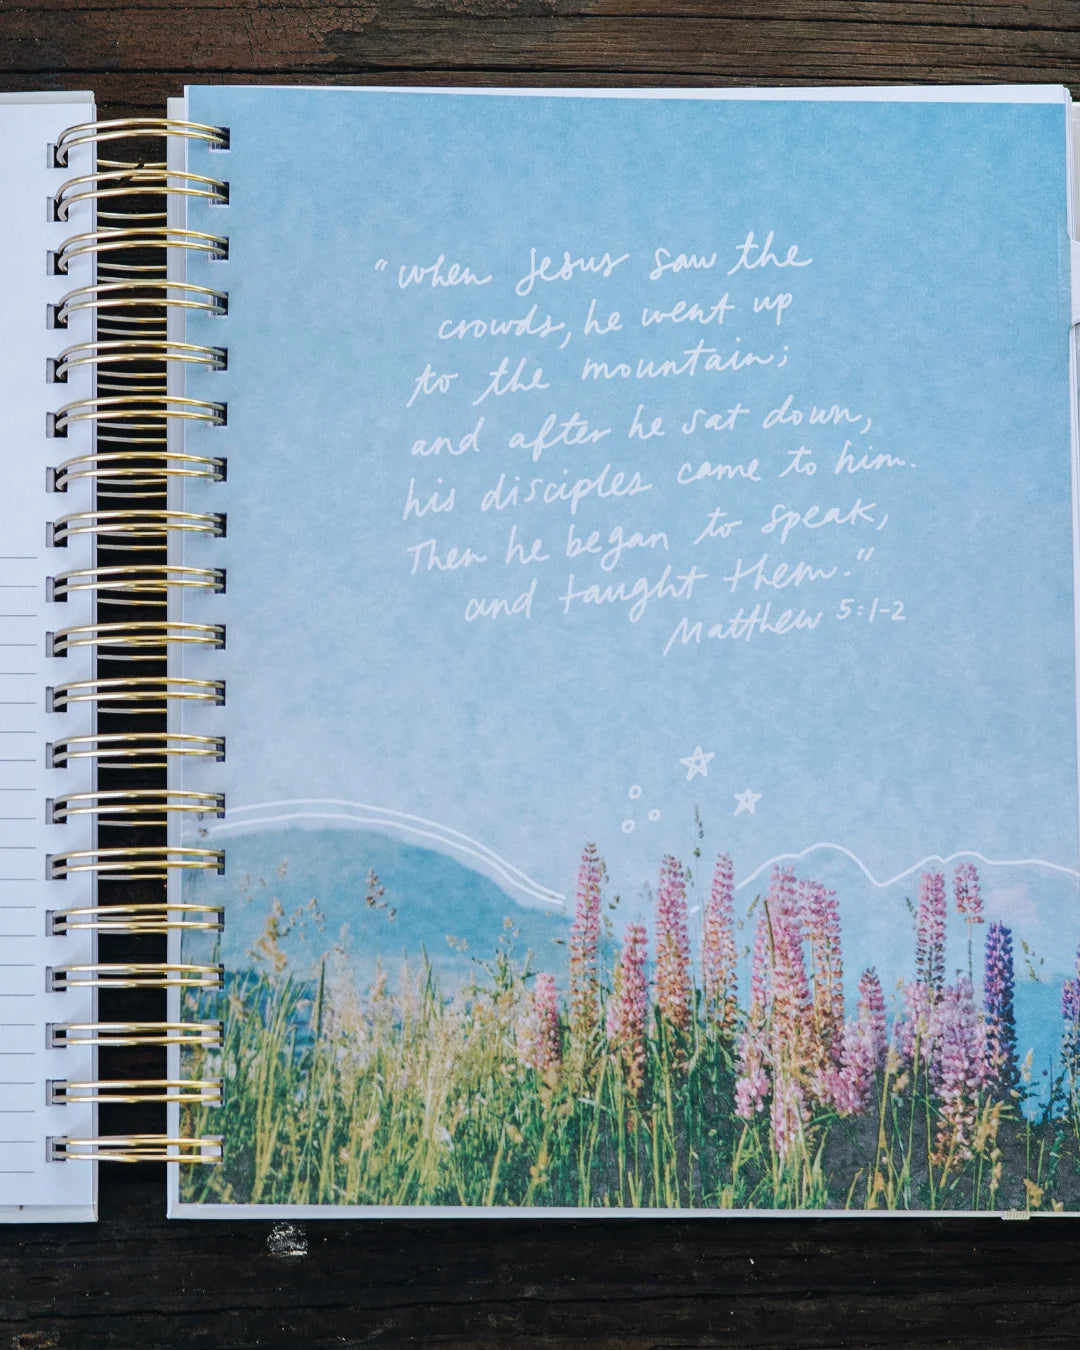 "when Jesus saw the
crowds, he went up
to the mountain;
and after he sat down,
his disciples came to him.
Then he began to speak,
and taught them."
Matthew 5:1-2